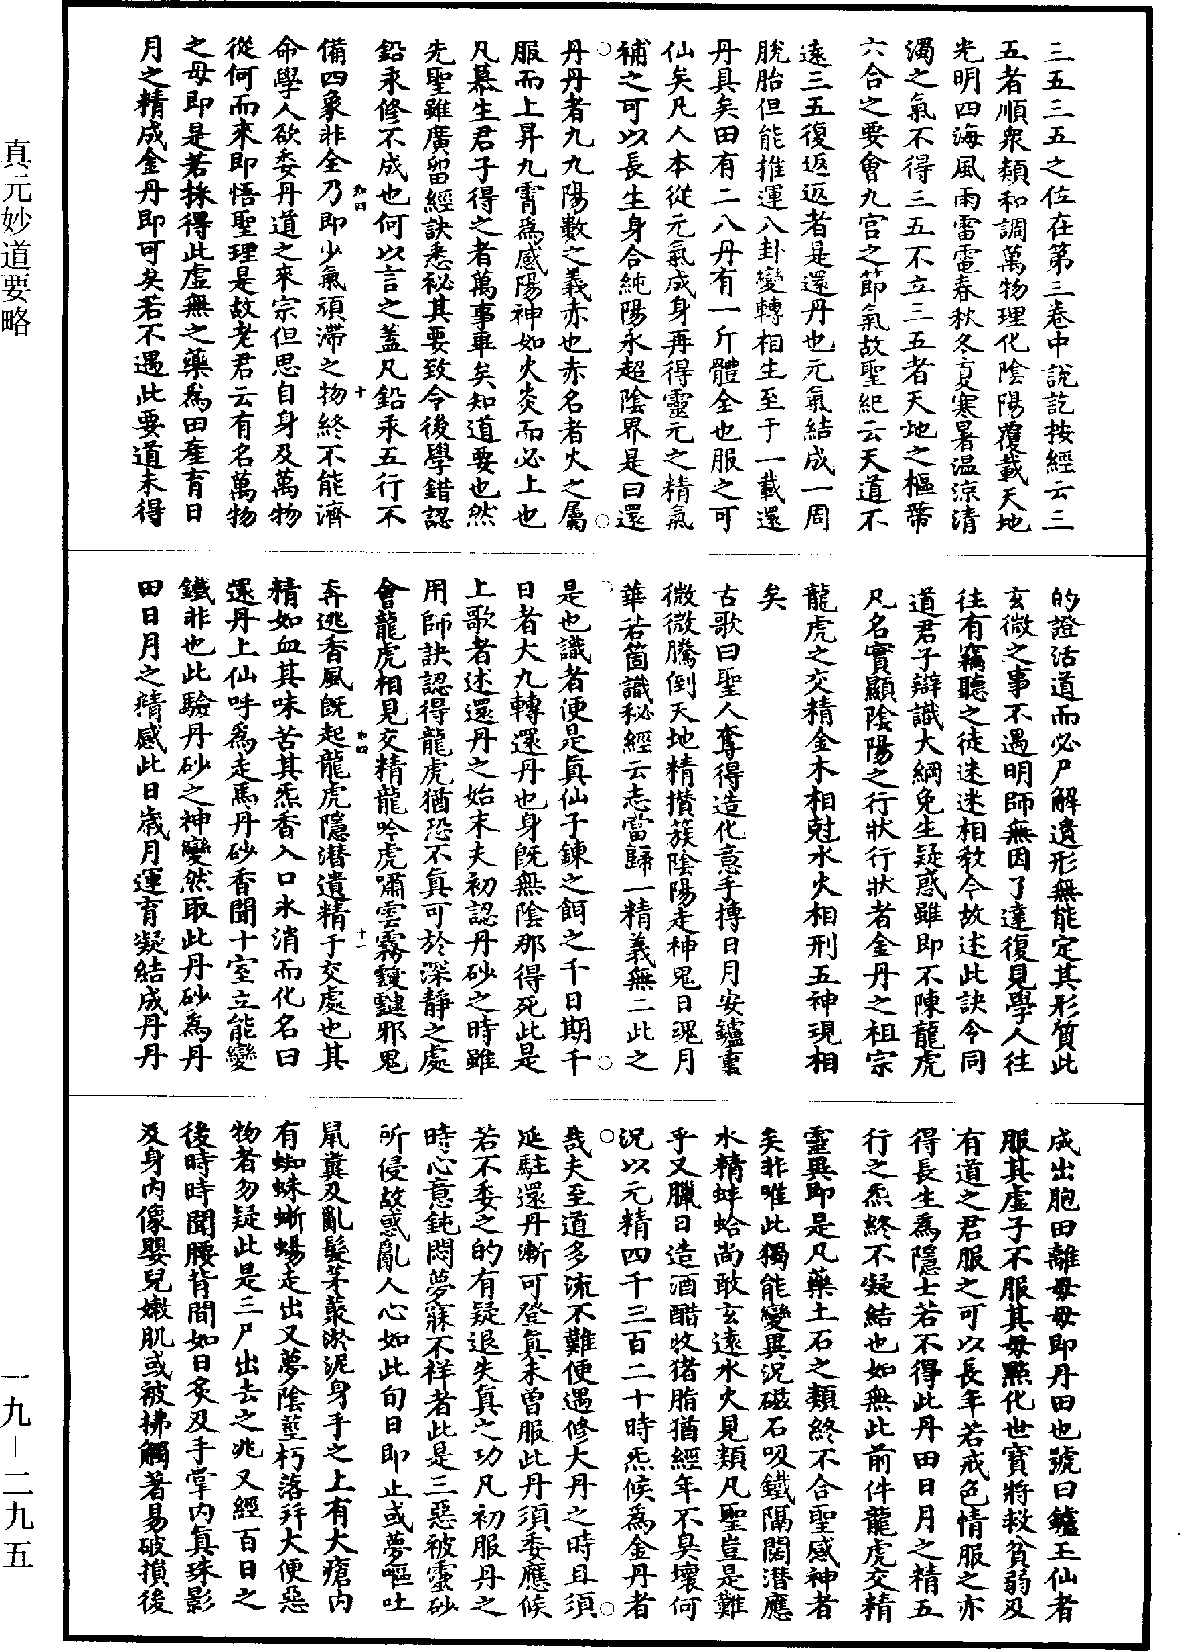 三五三五之位在第三卷中說訖按經云三
五者順衆類和調萬物理化陰陽覆載天地
光明四海風雨雷電春秋冬夏寒暑温涼清
濁之氣不得三五不立三五者天地之樞帶
六合之要會九宫之節氣故聖紀云天道不
遠三五復返返者是還丹也元氣結成一周
脫胎但能推運八卦變轉相生至于一載還
丹具矣田有二八丹有一斤體全也服之可
仙矣凡人本從元氣成身再得靈元之精氣
補之可以長生身合純陽永超陰界是曰還
丹丹者九九陽數之義赤也赤名者火之屬
服而上昇九霄爲感陽神如火炎而必上也
凡慕生君子得之者萬事畢矣知道要也然
先聖雖廣留經訣悉祕其要致今後學錯認
鉛汞修不成也何以言之蓋凡鉛汞五行不
備四象非全乃即少氣頑滯之物終不能濟
命學人欲委丹道之來宗但思自身及萬物
從何而來即悟聖理是故老君云有名萬物
之母即是若採得此虛無之藥爲田產育日
月之精成金丹即可矣若不遇此要道未得
的證活道而必尸解遺形無能定其形質此
玄微之事不遇明師無因了達復見學人往
往有竊聽之徒迷迷相教今故述此訣令同
道君子辯識大綱免生疑惑雖即不陳龍虎
凡名實顯陰陽之行狀行狀者金丹之祖宗
龍虎之交精金木相尅水火相刑五神現相
矣
古歌曰聖人奪得造化意手摶日月安鑪裏
微微騰倒天地精攢蔟陰陽走神鬼日魂月
華若箇識秘經云志當歸一精義無二此之
是也識者便是眞仙子鍊之餌之千日期千
日者大九轉還丹也身旣無陰那得死此是
上歌者述還丹之始末夫初認丹砂之時雖
用師訣認得龍虎猶恐不眞可於深靜之處
會龍虎相見交精龍吟虎嘯雲霧靉靆邪鬼
奔逃香風旣起龍虎隱潜遺精于交處也其
精如血其味苦其炁香入口氷消而化名曰
還丹上仙呼爲走馬丹砂香聞十室立能變
鐵非也此驗丹砂之神變然取此丹砂爲丹
田日月之精感此日歲月運育凝結成丹丹
成出胞田離母母即丹田也號曰鑪王仙者
服其虛子不服其母點化世寶將救貧弱及
有道之君服之可以長年若戒色情服之亦
得長生爲隱士若不得此丹田日月之精五
行之炁終不凝結也如無此前件龍虎交精
靈異即是凡藥土石之類終不合聖感神者
矣非唯此獨能變異況磁石吸鐵隔閡潜應
水精蚌蛤尚敢玄遠水火見類凡聖豈是難
乎又臘日造酒醋收猪脂猶經年不臭壞何
況以元精四千三百二十時炁候爲金丹者
哉夫至道多流不難便遇修大丹之時且須
延駐還丹漸可登眞未曾服此丹須委應候
若不委之的有疑退失真之功凡初服丹之
時心意鈍悶夢寐不祥者此是三惡被靈砂
所侵故惑亂人心如此旬日即止或夢嘔吐
鼠糞及亂髮茅蒺淤泥身手之上有大瘡內
有蜘蛛蜥蜴走出又夢陰莖朽落并大便惡
物者勿疑此是三尸出去之兆又經百日之
後時時聞腰背間如日炙及手掌內眞珠影
及身內像嬰兒嫩肌或被拂觸著易破損後
真元妙道要略
一九－二九五